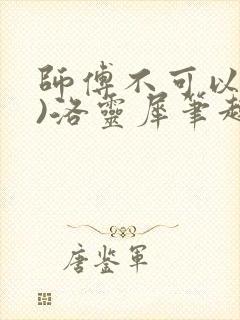 師傅不可以
)洛靈犀筆趣
唐鉴軍